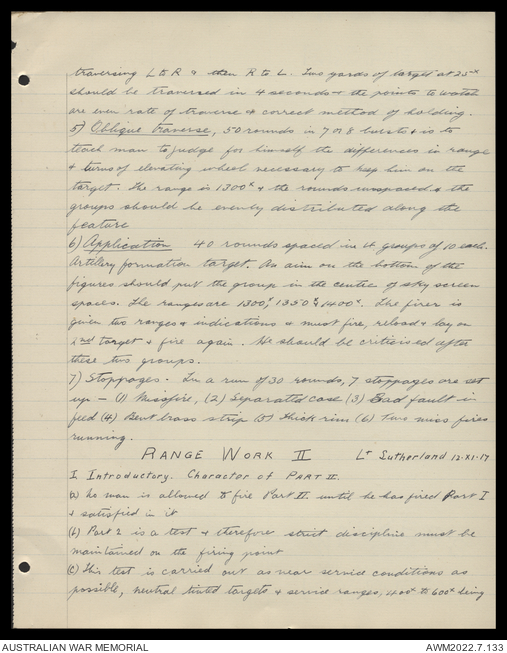 traversing L to R & then R to L. Two yards of target at 25ˣ
should be traversed in 4 seconds & the points to watch
are even rate of traverse & correct method of holding.
5) Oblique Traverse, 50 rounds in 7 or 8 bursts & is to
teach man to judge for himself the differences in range
& turns of elevating wheel necessary to keep him on the
target. The range is 1300ˣ & the rounds unspaced & the
groups should be evenly distributed along the
feature
6) Application 40 rounds spaced in 4 groups of 10 each.
Artillery formation target. An aim on the bottom of the
figures should put the group in the centre of sky screen
spaces. The ranges are 1300ˣ, 1350ˣ & 1400ˣ. The firer is
given two ranges & indications & must fire, reload & lay on
2nd target & fire again. He should be criticised after
these two groups.
7) Stoppages. In a run of 30 rounds, 7 stoppages are set
up – (1) Missfire, (2) Separated case (3) Bad fault in
feed (4) Bent brass strip (5) Thick rim (6) Two miss fires
running.
RANGE WORK II Lt Sutherland 12.XI.17
I Introductory. Character of PART II.
(a) No man is allowed to fire Part II until he has fired Part I
& satisfied in it
(b) Part 2 is a test & therefore strict discipline must be
maintained on the firing point
(c) This test is carried out as near service conditions as
possible, neutral tinted targets & service ranges, 400ˣ to 600ˣ being
AUSTRALIAN WAR MEMORIAL
AWM2022.7.133